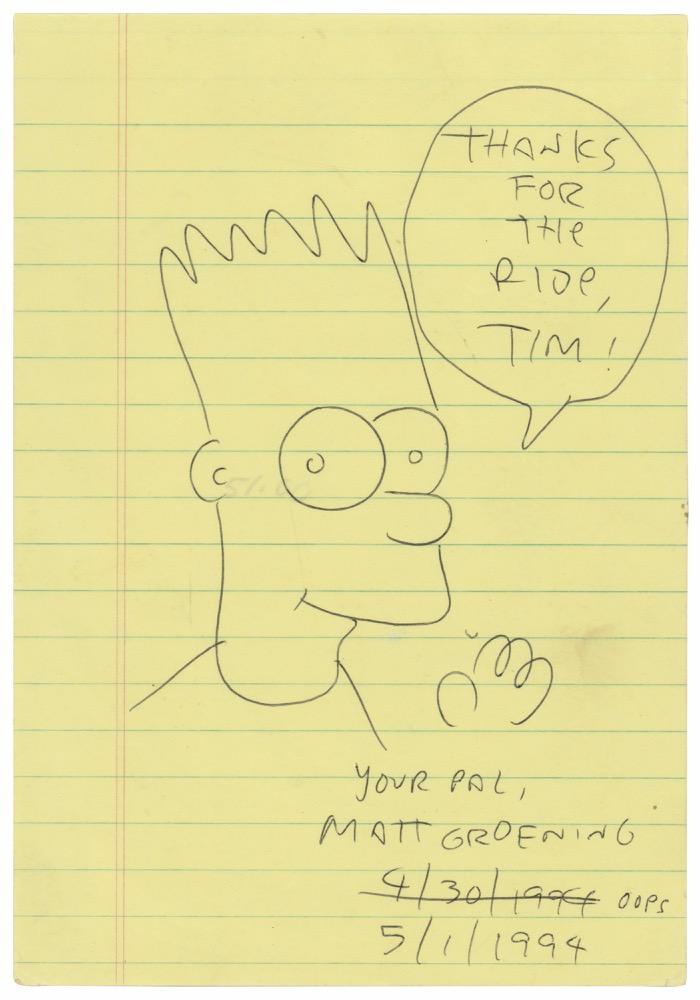 THANKS
FOR
THE
RIDE,
TIM!
YOUR PAL,
MATT GROENING
4/30/1994 OOPS
5/1/1994